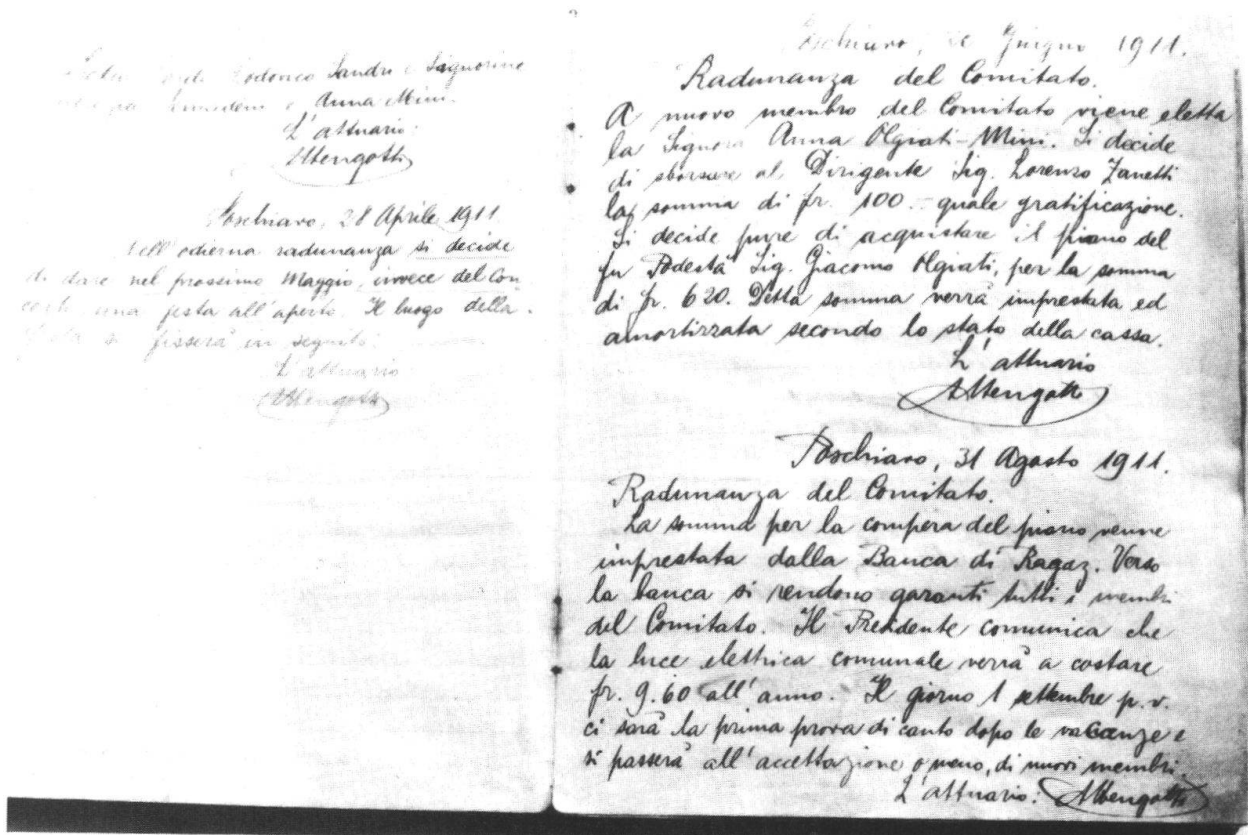 Rodorico Sandri e Signorine
e Anna Mini.
L'attuario:
AMengotti
Poschiavo, 28 Aprile 1911
Nell'odierna radunanza si decide
di dare nel prossimo Maggio, invece del Con-
certo una festa all'aperto. Il luogo della
festa si fisserà in seguito.
L'attuario
AMengotti
Poschiavo, Giugno 1911.
Radunanza del Comitato.
A nuovo membro del Comitato viene eletta
la Signora Anna Olgiati-Mini. Si decide
di sborsare al Dirigente Sig. Lorenzo Zanetti
la somma di fr. 100.- quale gratificazione.
Si decide pure di acquistare il piano del
fu Podestà Sig. Giacomo Olgiati, per la somma
di fr. 620. Detta somma verrà imprestata ed
amortizzata secondo lo stato della cassa.
L'attuario
AMengotti
Poschiavo, 31 Agosto 1911.
Radunanza del Comitato.
La somma per la compera del piano venne
imprestata dalla Banca di Ragaz. Verso
la banca si rendono garanti tutti i membri
del Comitato. Il Presidente comunica che
la luce elettrica comunale verrà a costare
fr. 9.60 all'anno. Il giorno 1 settembre p.v.
ci sarà la prima prova di canto dopo le vacanze e
si passerà all'accettazione o meno, di nuovi membri.
L'attuario: AMengotti